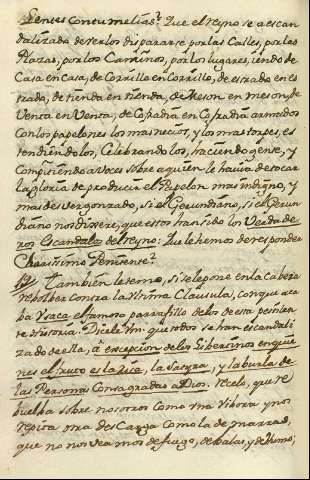 lentes contumelias? Que el reyno se a escan
dalizado de verlos dispararse por las Calles, por las
Plazas, por los Caminos, por los lugares, iendo de
Casa en Casa, de Corrillo en Corrillo, de estrado en es
trado, de tienda en tienda, de Meson en meson, de
Venta en Venta, de Cofradia en Cofradia armados
con los papelones los mas necios, y los mas torpes, es
tendiendolos, Celebrandolos, haciendo gente, y
Compitiendo a voces sobre a quien le havia de tocar
la gloria de producir el Papelon mas indigno, y
mas desvergonzado, si el Gerundiano, si el Gerun
diano nos dixere, que estos han sido los Verdade
ros Escandalos del reyno: Que le hemos de responder
Charissimo Penitente?
Tambien le temo, si se le pone en la Cabeza
rebolber contra la Ultima Clausula, con que aca
ba Vsaca el famoso parrafillo de los de esta pestilen
te Historia: Dicele Vm que todos se han escandali
zado de ella, a excepcion de los Libertinos en quie
nes el fruto es la risa, la satyra, y la burla de
las Personas Consagradas a Dios. recelo, que re
buelba sobre nosotros como una Vibora y nos
repita una descarga como la de marras,
que no nos veamos de fuego, de balas, y de humo;